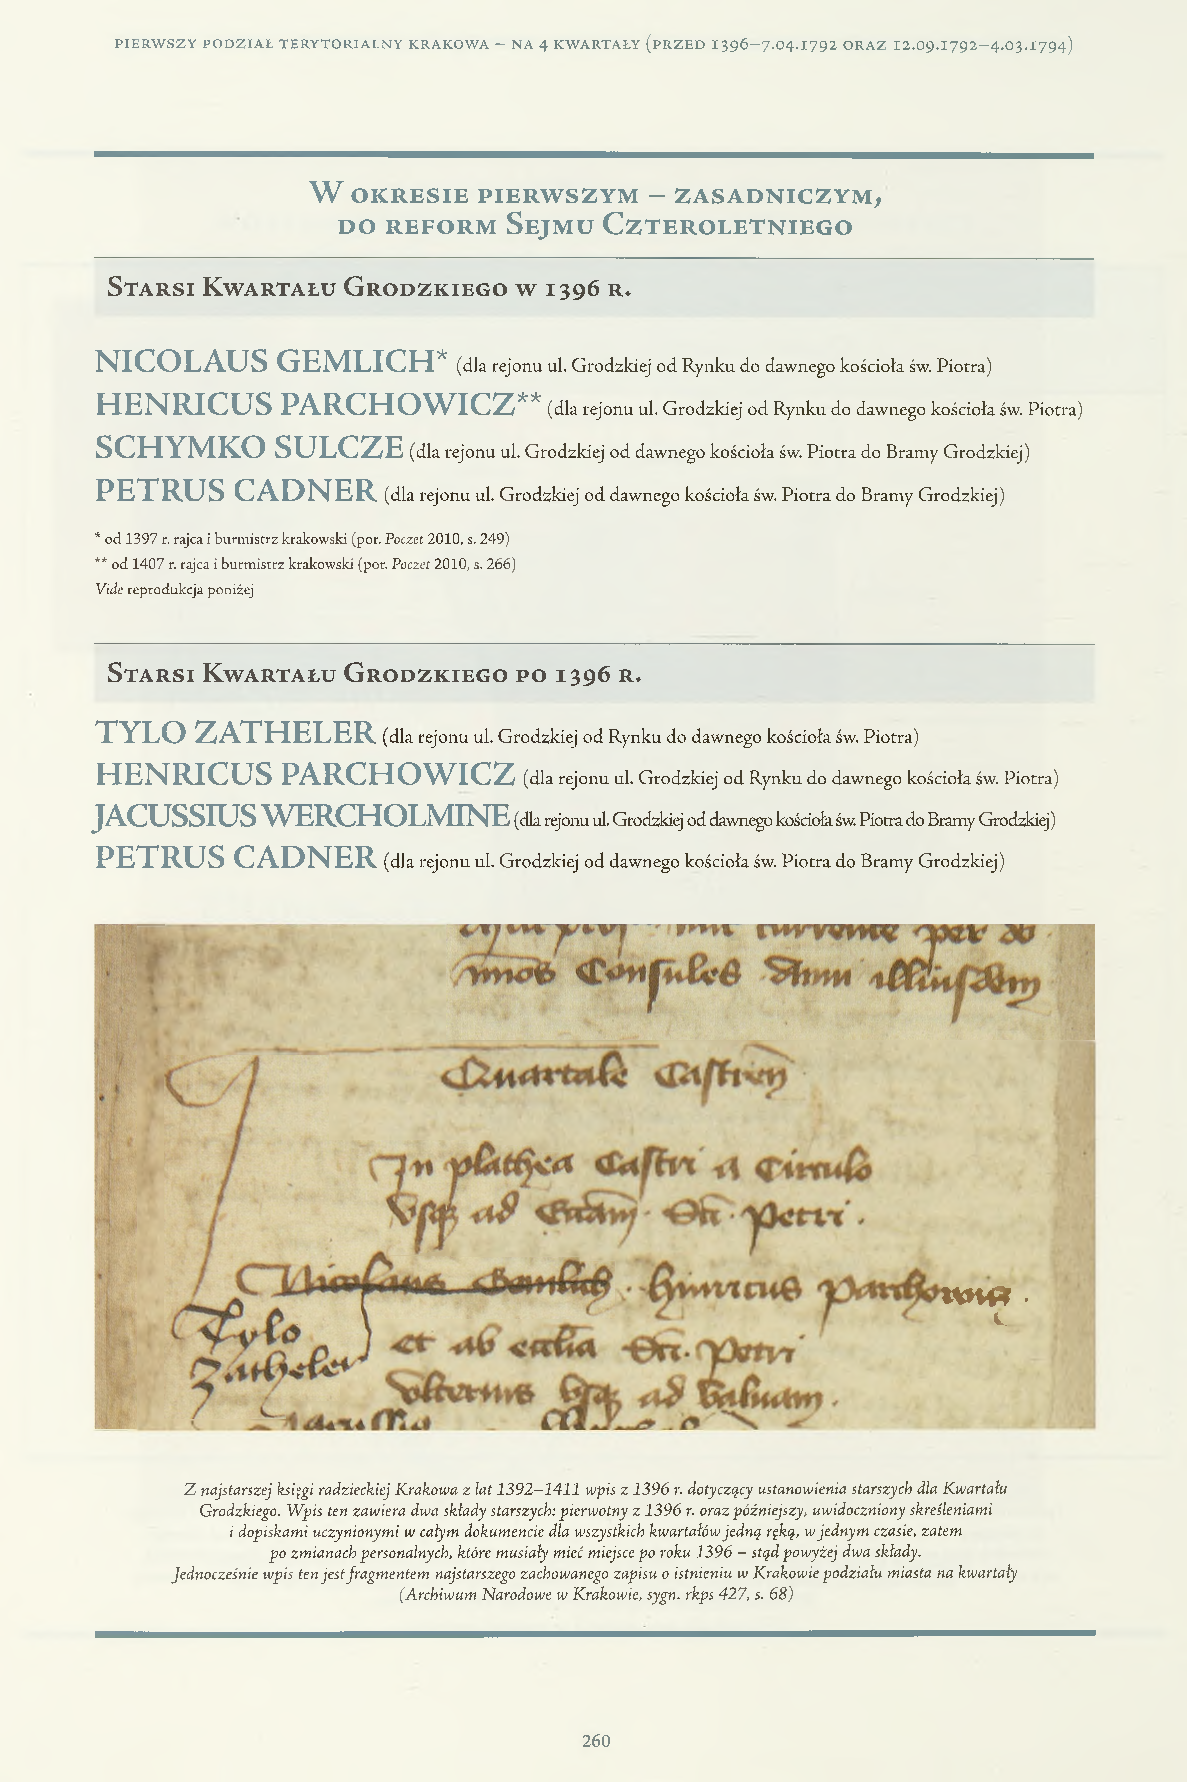 PIERWSZY PODZIAŁ TERYTORIALNY KRAKOWA – NA 4 KWARTAŁY (PRZED 1396–7.04.1792 ORAZ 12.09.1792–4.03.1794)
W OKRESIE PIERWSZYM – ZASADNICZYM,
DO REFORM SEJMU CZTEROLETNIEGO
STARSI KWARTAŁU GRODZKIEGO W 1396 R.
NICOLAUS GEMLICH* (dla rejonu ul. Grodzkiej od Rynku do dawnego kościoła św. Piotra)
HENRICUS PARCHOWICZ** (dla rejonu ul. Grodzkiej od Rynku do dawnego kościoła św. Piotra)
SCHYMKO SULCZE (dla rejonu ul. Grodzkiej od dawnego kościoła św. Piotra do Bramy Grodzkiej)
PETRUS CADNER (dla rejonu ul. Grodzkiej od dawnego kościoła św. Piotra do Bramy Grodzkiej)
* od 1397 r. rajca i burmistrz krakowski (por. Poczet 2010, s. 249)
** od 1407 r. rajca i burmistrz krakowski (por. Poczet 2010, s. 266)
Vide reprodukcja poniżej
STARSI KWARTAŁU GRODZKIEGO PO 1396 R.
TYLO ZATHELER (dla rejonu ul. Grodzkiej od Rynku do dawnego kościoła św. Piotra)
HENRICUS PARCHOWICZ (dla rejonu ul. Grodzkiej od Rynku do dawnego kościoła św. Piotra)
JACUSSIUS WERCHOLMINE (dla rejonu ul. Grodzkiej od dawnego kościoła św. Piotra do Bramy Grodzkiej)
PETRUS CADNER (dla rejonu ul. Grodzkiej od dawnego kościoła św. Piotra do Bramy Grodzkiej)
currente per do
Consules Anni illiusdem
Quartale Castren
In plathea Castri a Circulo
Usque ad Eccliam Sti Petri.
Nicolaus Gemlich. Hinricus Parchowicz.
Tylo
Zatheler
et ab ecclia Sti. Petri
Ulterius usque ad Valuam.
Z najstarszej księgi radzieckiej Krakowa z lat 1392–1411 wpis z 1396 r. dotyczący ustanowienia starszych dla Kwartału
Grodzkiego. Wpis ten zawiera dwa składy starszych: pierwotny z 1396 r. oraz późniejszy, uwidoczniony skreśleniami
i dopiskami uczynionymi w całym dokumencie dla wszystkich kwartałów jedną ręką, w jednym czasie, zatem
po zmianach personalnych, które musiały mieć miejsce po roku 1396 – stąd powyżej dwa składy.
Jednocześnie wpis ten jest fragmentem najstarszego zachowanego zapisu o istnieniu w Krakowie podziału miasta na kwartały
(Archiwum Narodowe w Krakowie, sygn. rkps 427, s. 68)
260